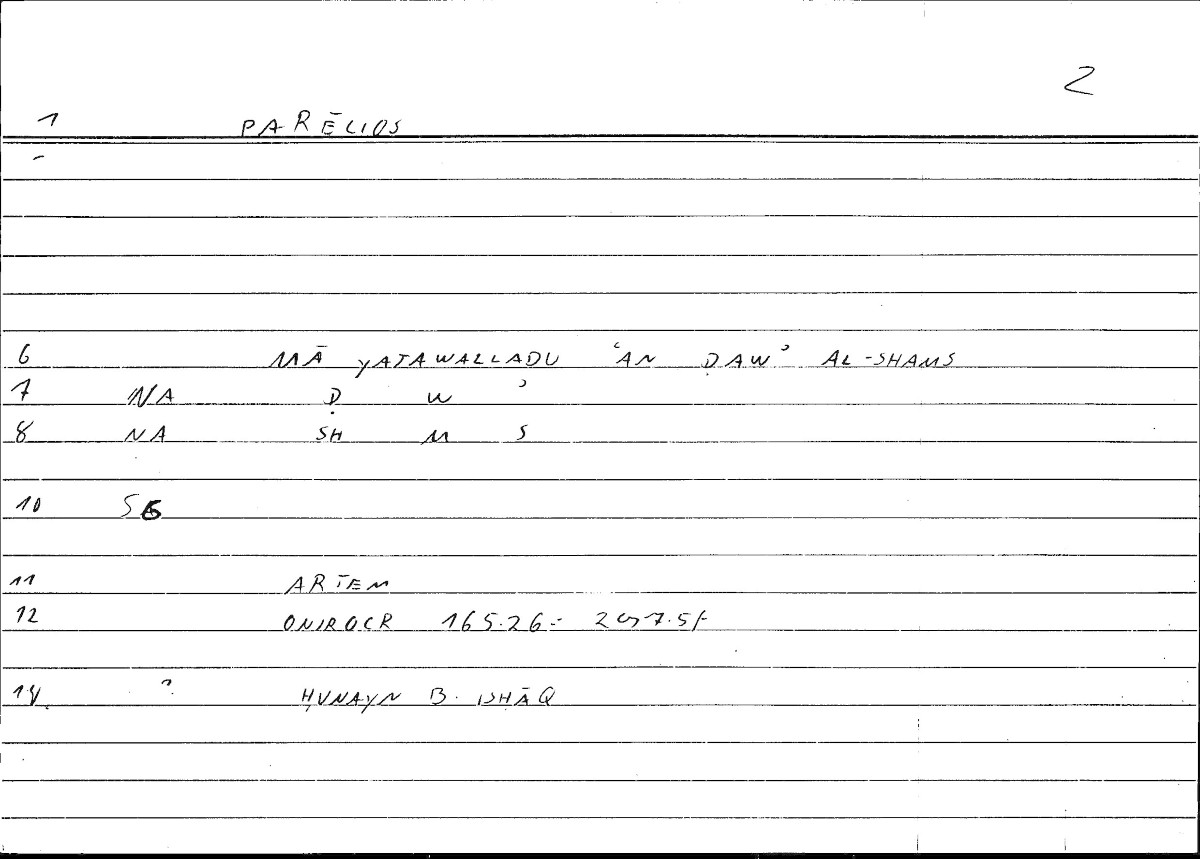 2
1 PARĒLIOS
6 MĀ YATAWALLADU ʿAN ḌAWʾ AL-SHAMS
7 NA Ḍ W ʾ
8 NA SH M S
10
11 ARTEM
12 ONIROCR 165.26 =
14 HUNAYN B. ISḤĀQ